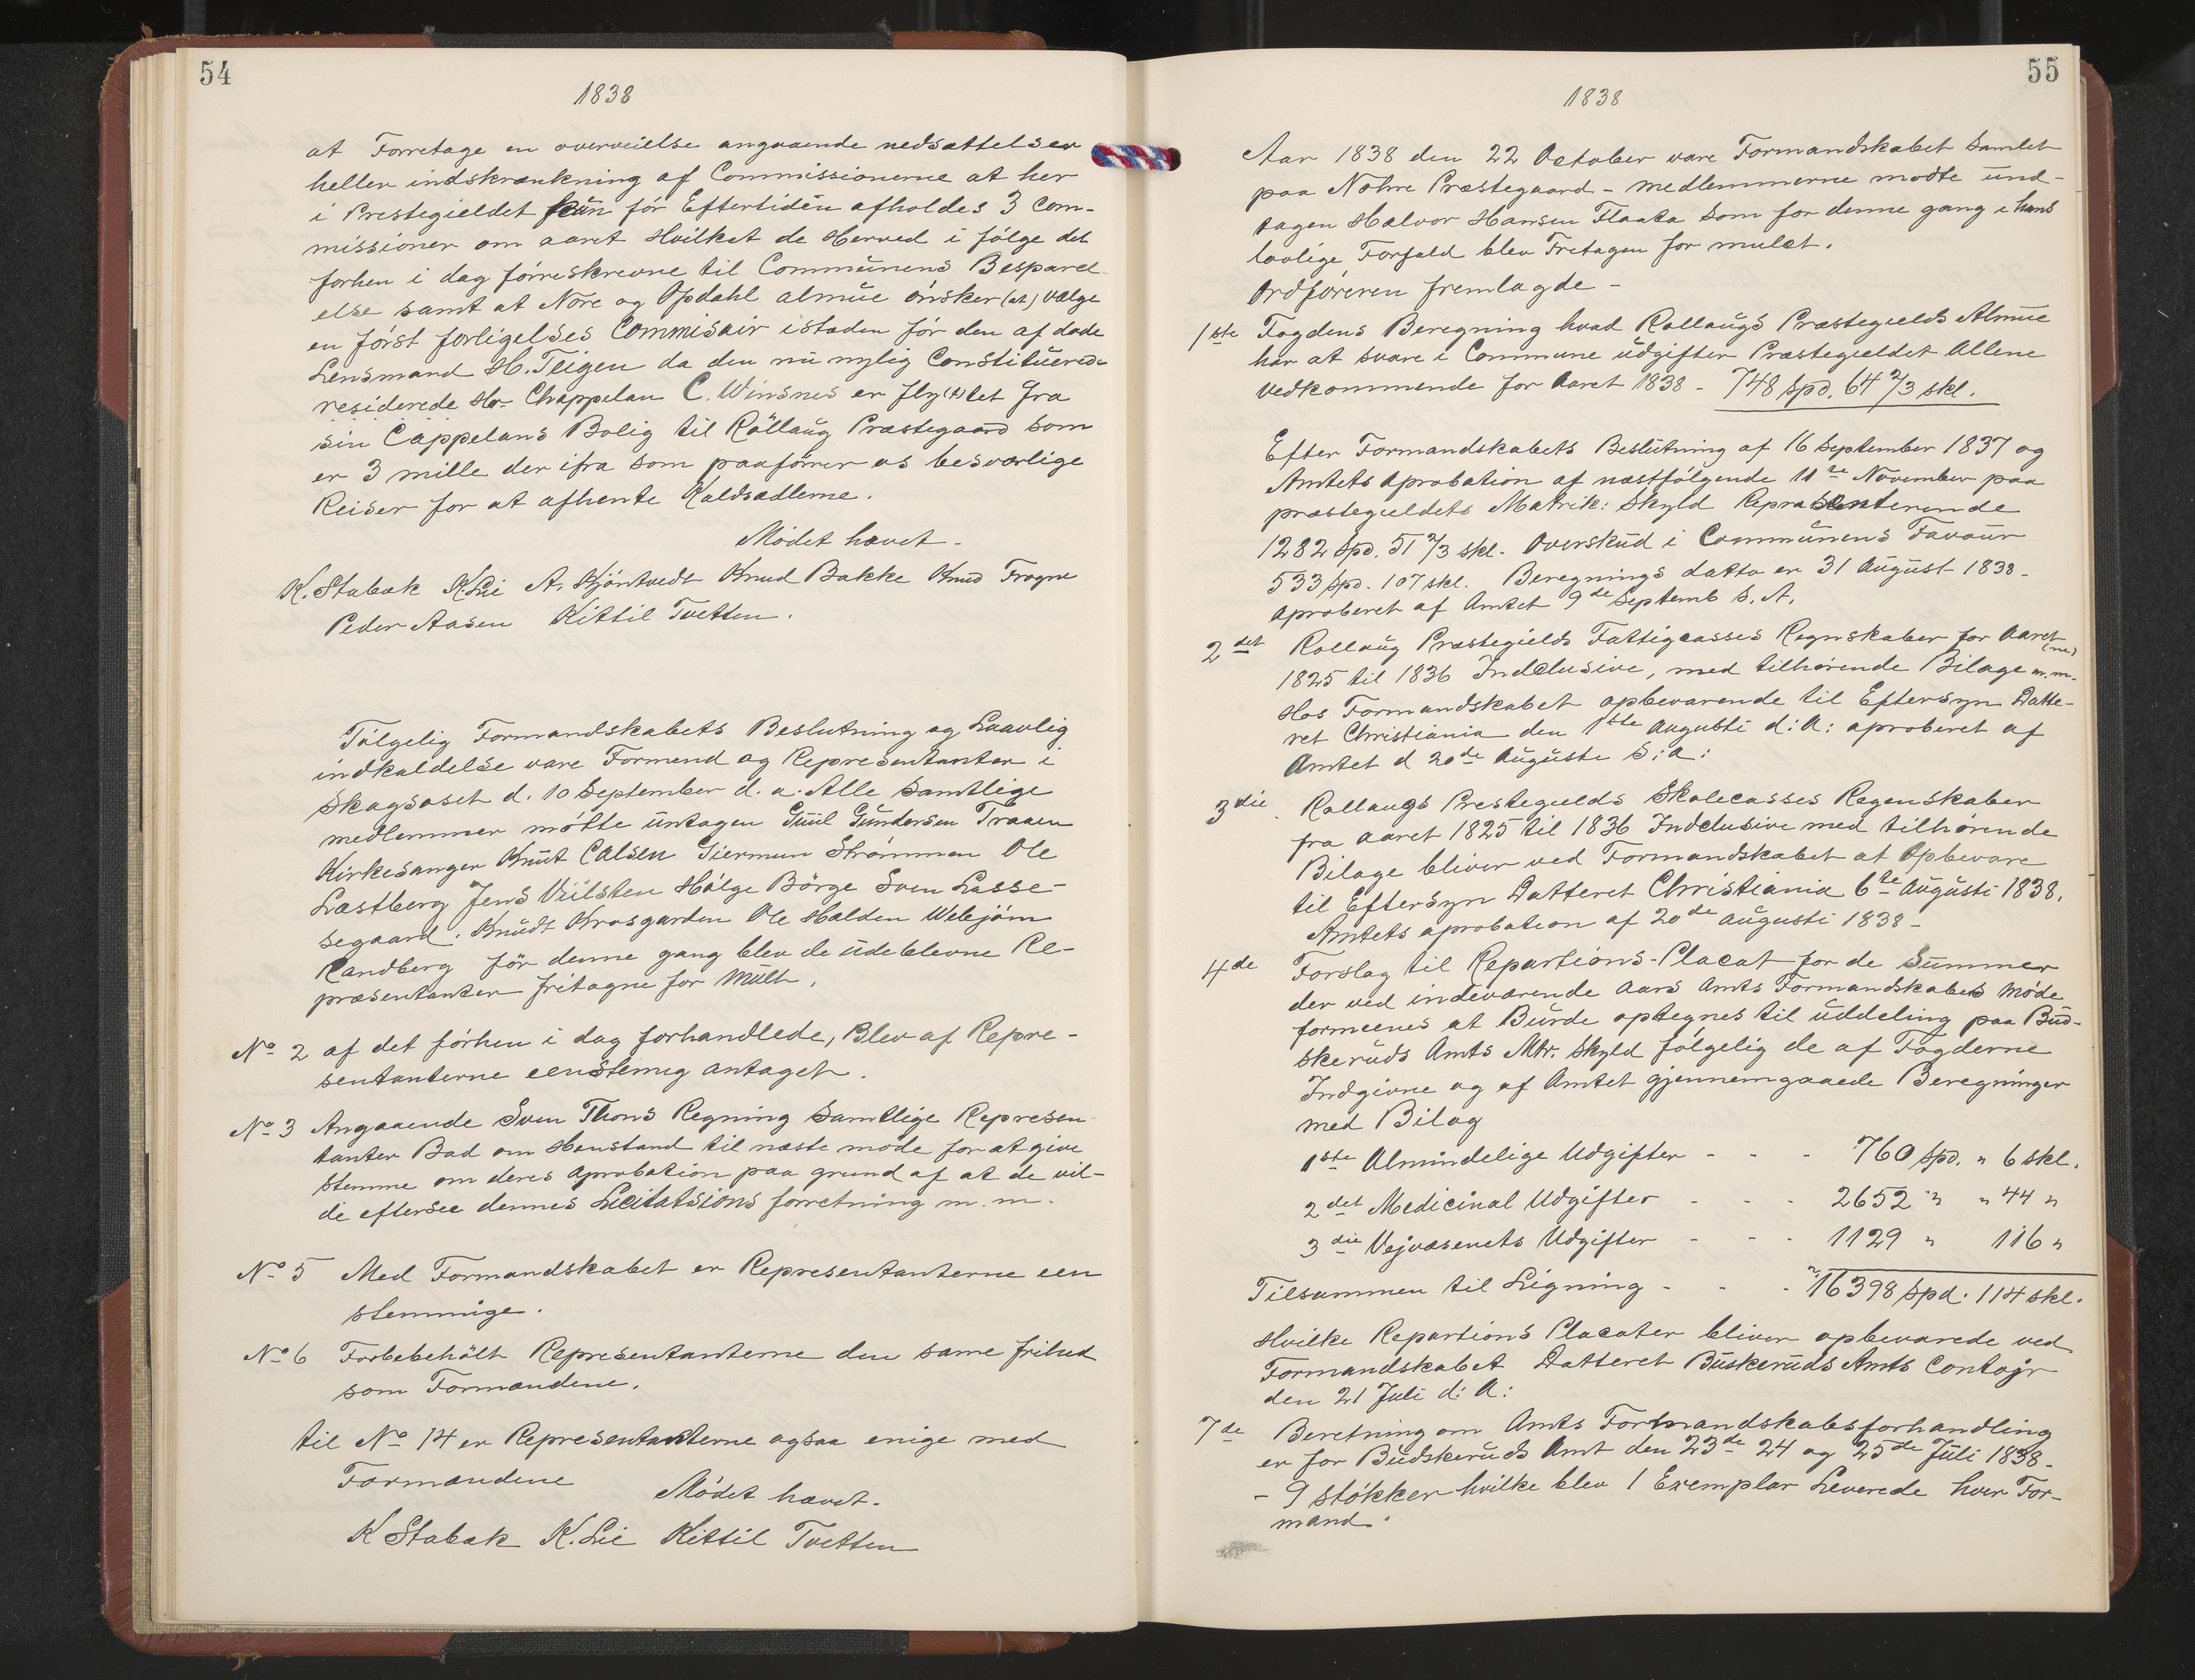 54
1838
at Forretage en overveielse angaaende nedsættelser
heller indskrænkning af Commissionerne at her
i Prestegieldet kun før Eftertiden afholdes 3 Com-
missioner om aaret Hvilket de Herved i følge det
forhen i dag førreskrevne til Communens Bespared-
else samt at Nore og Opdahl almue ønsker (at) vælge
en først forligelses Commisair istaden før den af døde
Lensmand H. Teigen da den nu nylig Constituered-
residerede Hr. Chappelan C. Winsnes er fly(t)tet fra
sin Cappelans Bolig til Rållaug Præstegaard som
er 3 mille der ifra som paafører os besværlige
Reiser for at afhente Kaldsedlerne.
Mødet hævet -
K. Stabæk K. Lie A. Kjøntvedt Knud Bakke Knud Frogne
Peder Aasen Kittil Tvetten.
Følgelig Formandskabets Beslutning og Laavlig
indkaldelse vare Formend og Representanter i
Skagsoset d. 10 September d. a. Alle samtlige
medlemmer møtte untagen Guul Gundersen Traaen
Kirkesanger Knut Calsen Giermun Strømmen Ole
Læstberg Jens Viilsten Hølge Børge Sven Lasse-
segaard. Knudt Krosgarden Ole Halden Webjørn
Randberg før denne gang blev de udeblevne Re-
præsentanter fritagne for Mult.
No 2 af det førhen i dag forhandlede, Blev af Repre-
sentanterne eenstemig antaget.
No 3 Angaaende Sven Thons Regning Samtlige Represen-
tanter Bad om Henstand til næste møde for at give
stemme om deres aprobation paa grund af at de vil-
de eftersee dennes Licitatsions forretning m. m.
No 5 Med Formandskabet er Representanterne een
stemmige.
No 6 Forbebehølt Representanterne den same frihed
som Formændene.
til No 14 er Representanterne ogsaa enige med
Formændene
Mødet hævet.
K Stabæk K. Lie Kittil Tvetten
55
1838
Aar 1838 den 22 October vare Formandskabet Samlet
paa Nohre Præstegaard - medlemmerne mødte und-
tagen Halvor Hansen Flaata Som for denne gang i hans
lovlige Forfald blev Fretagen for mulct.
Ordføreren fremlagde -
1ste Fogdens Beregning hvad Rollaugs Præstegields Almue
har at svare i Commune udgifter Præstegieldet Allene
vedkommende for Aaret 1838 - 748 spd. 64 2/3 skl.
Efter Formandskabets Beslutning af 16 September 1837 og
Amtets Aprobation af næstfølgende 11te November paa
præstegieldets Matrik: Skyld Repræsenterende
1282 spd. 51 2/3 skl. Overskud i Communens Favour
533 spd. 107 skl. Beregnings datto er 31 August 1838-
aproberet af Amtet 9de Septemb S. A.
2det Rollaug Præstegields Fattigcasses Regnskaber for Aaret (ne)
1825 til 1836 Indclusive, med tilhørende Bilage m. m.
Hos Formandskabet opbevarende til Eftersyn Datte-
ret Christiania den 1ste Augusti d: A: aproberet af
Amtet d 20de Auguste S: a:
3die Rollaugs Prestegields Skolecasses Regenskaber
fra aaret 1825 til 1836 Indclusive med tilhørende
Bilage bliver ved Formandskabet at Opbevare
til Eftersyn Datteret Christiania 6te Augusti 1838.
Amtets aprobation af 20de Augusti 1838 -
4de Forslag til Repartions-Placat for de Summer
der ved indeværende Aars Amts Formandskabets Møde
formeenes at Burde optegnes til uddeling paa Bud-
skeruds Amts Mtr. Skyld følgelig de af Fogderne
Indgivne og af Amtet gjennemgaaede Beregninger
med Bilag
1ste Almindelige Udgifter - - - 760 spd. " 6 skl.
2det Medicinal Udgifter - - - 2652 " " 44 "
3die Vejvæsenets Udgifter - - - 1129 " 116 "
Tilsammen til Ligning - - - 16398 spd. 114 skl.
Hvilke Repartions Placater bliver opbevarede ved
Formandskabet Datteret Buskeruds Amts Contojr
den 21 Juli d: A:
7de Beretning om Amts Formandskabsforhandling
er for Budskeruds Amt den 23de 24 og 25de Juli 1838-
- 9 støkker hvilke blev 1 Exemplar Leverede hver For-
mand.